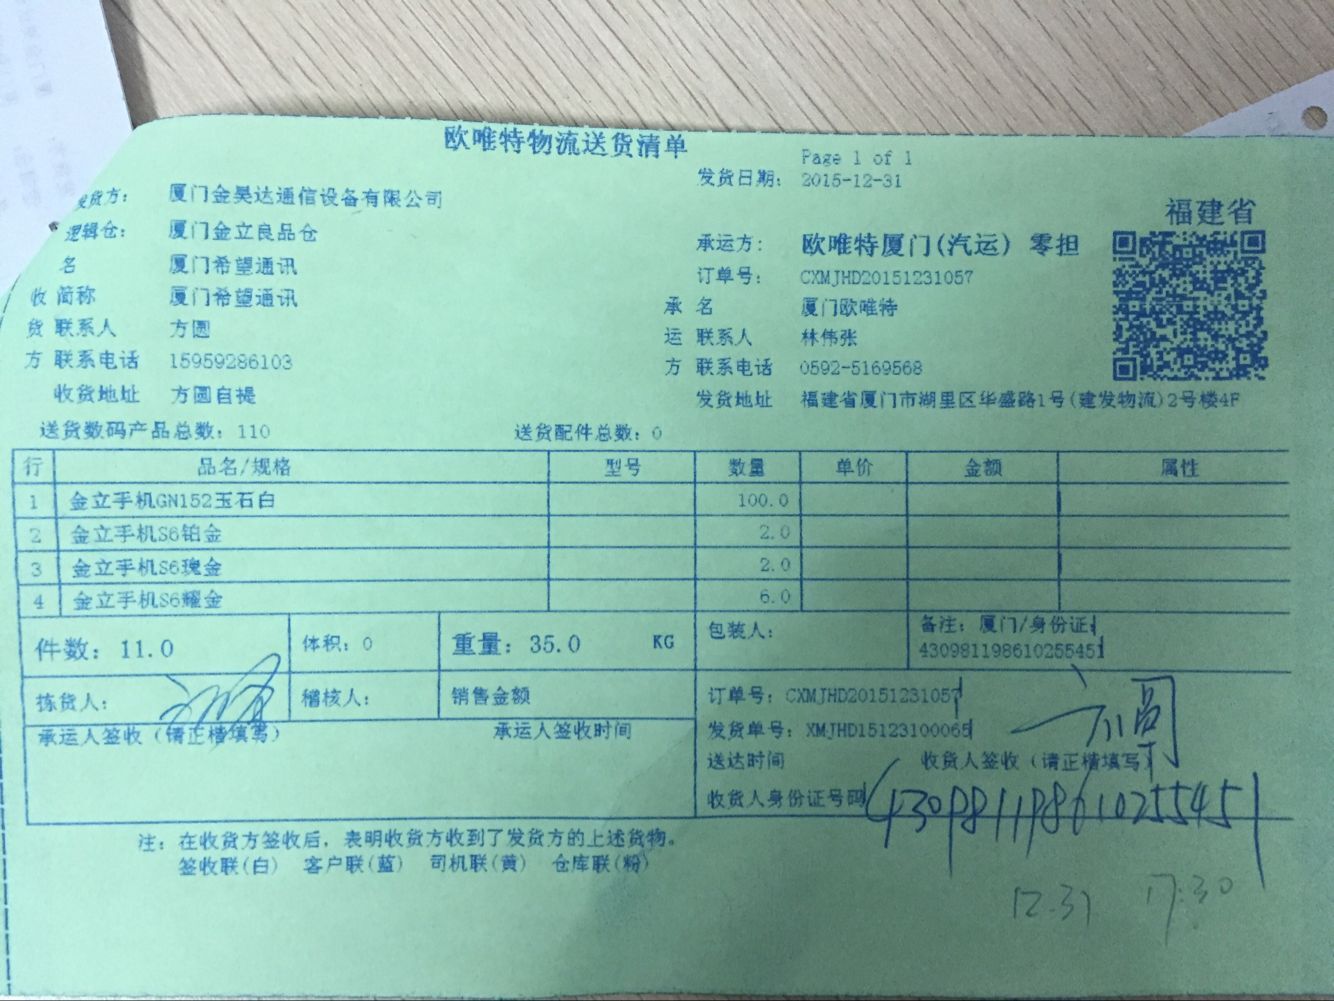 欧唯特物流送货清单
Page 1 of 1
发货日期： 2015-12-31
发货方： 厦门金昊达通信设备有限公司
福建省
逻辑仓： 厦门金立良品仓
承运方： 欧唯特厦门(汽运) 零担
名 厦门希望通讯
订单号： CXMJHD20151231057
收 简称 厦门希望通讯
承 名 厦门欧唯特
货 联系人 方圆
运 联系人 林伟张
方 联系电话 15959286103
方 联系电话 0592-5169568
收货地址 方圆自提
发货地址 福建省厦门市湖里区华盛路1号(建发物流)2号楼4F
送货数码产品总数： 110 送货配件总数： 0
行 品名/规格 型号 数量 单价 金额 属性
1 金立手机GN152玉石白 100.0
2 金立手机S6铂金 2.0
3 金立手机S6瑰金 2.0
4 金立手机S6耀金 6.0
件数： 11.0 体积：0 重量：35.0 KG 包装人： 备注：厦门/身份证
430981198610255451
拣货人： 稽核人： 销售金额 订单号：CXMJHD20151231057
承运人签收（请正楷填写） 承运人签收时间 发货单号：XMJHD15123100065
送达时间 收货人签收（请正楷填写）
方圆
收货人身份证号码 430981198610255451
注：在收货方签收后，表明收货方收到了发货方的上述货物。
签收联(白) 客户联(蓝) 司机联(黄) 仓库联(粉)
12.31 17:30